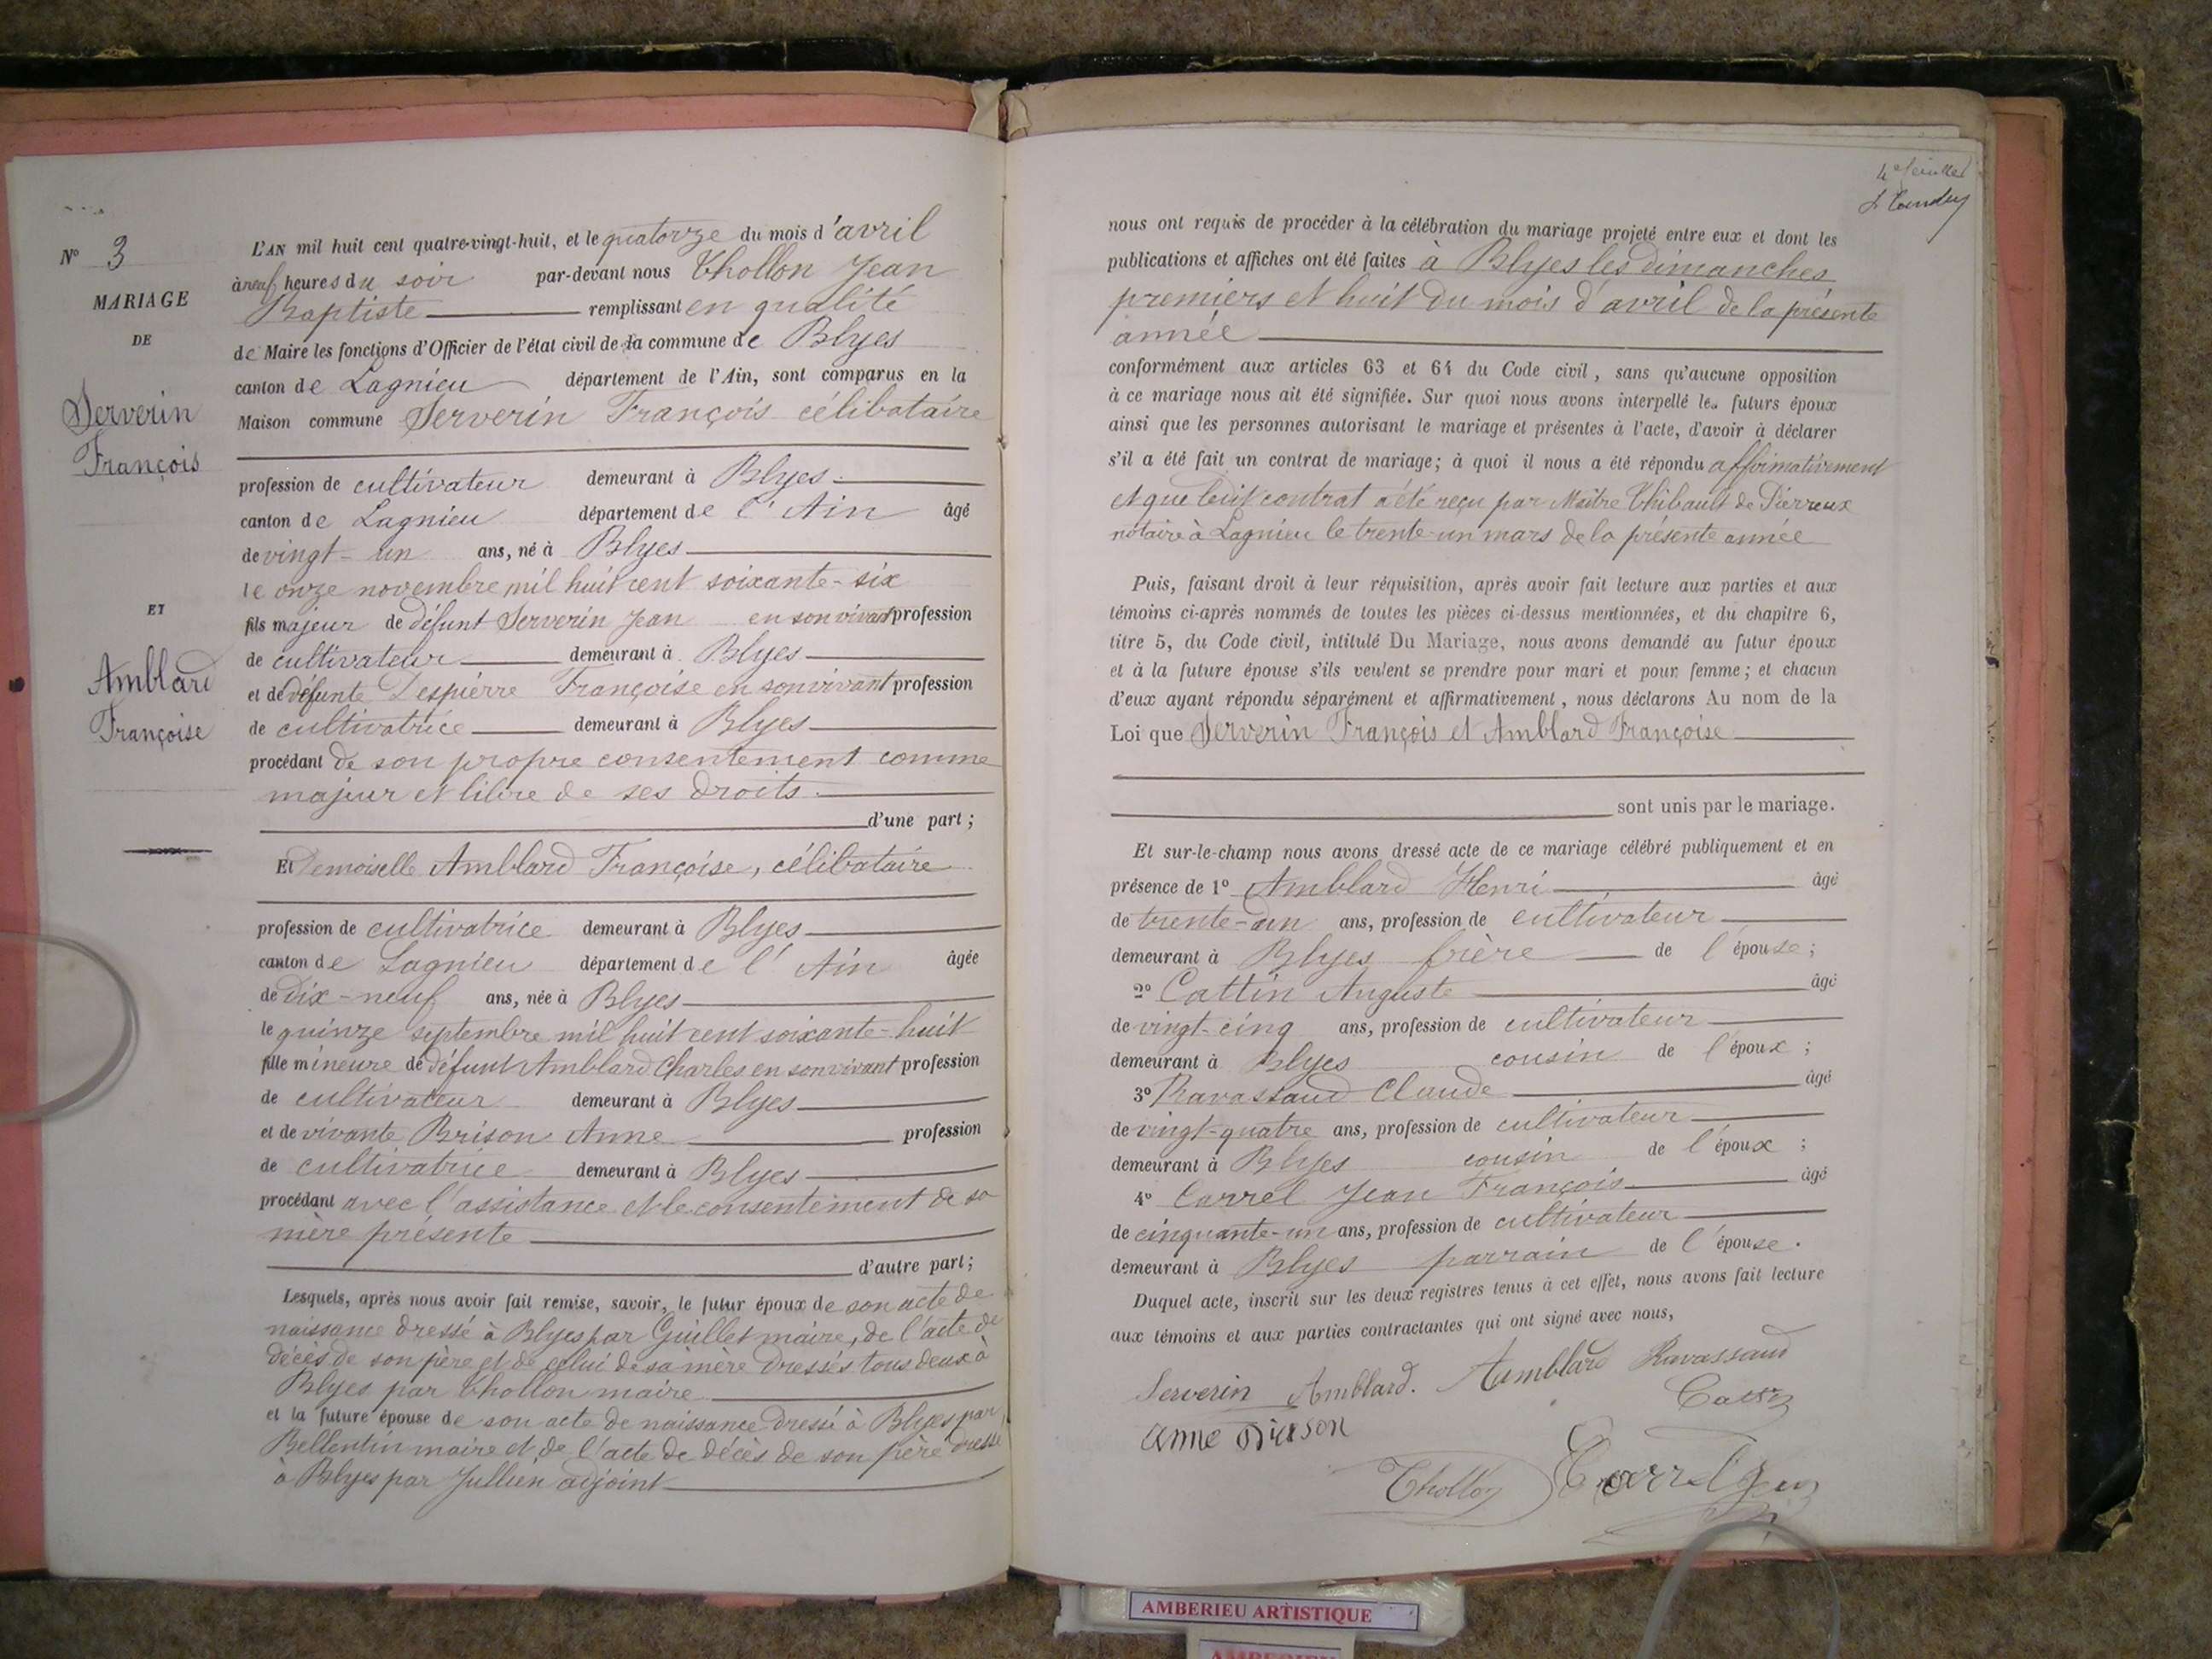 N° 3
MARIAGE
DE
Serverin
François
ET
Amblard
Françoise
L'AN mil huit cent quatre-vingt-huit, et le quatorze du mois d'avril
à neuf heures du soir par-devant nous Chollon Jean
Baptiste remplissant en qualité
de Maire les fonctions d'Officier de l'état civil de la commune de Blyes
canton de Lagnieu département de l'Ain, sont comparus en la
Maison commune Serverin François célibataire
profession de cultivateur demeurant à Blyes
canton de Lagnieu département de l'Ain âgé
de vingt-un ans, né à Blyes
le onze novembre mil huit cent soixante-six
fils majeur de défunt Serverin Jean en son vivant profession
de cultivateur demeurant à Blyes
et de défunte Despierre Françoise en son vivant profession
de cultivatrice demeurant à Blyes
procédant de son propre consentement comme
majeur et libre de ses droits.
d'une part ;
Et Demoiselle Amblard Françoise, célibataire
profession de cultivatrice demeurant à Blyes
canton de Lagnieu département de l'Ain âgée
de dix-neuf ans, née à Blyes
le quinze septembre mil huit cent soixante-huit
fille mineure de défunt Amblard Charles en son vivant profession
de cultivateur demeurant à Blyes
et de vivante Brison Anne profession
de cultivatrice demeurant à Blyes
procédant avec l'assistance et le consentement de sa
mère présente
d'autre part ;
Lesquels, après nous avoir fait remise, savoir, le futur époux de son acte de
naissance dressé à Blyes par Guillet maire, de l'acte de
décès de son père et de celui de sa mère dressés tous deux à
Blyes par Chollon maire
et la future épouse de son acte de naissance dressé à Blyes par
Bellentin maire et de l'acte de décès de son père dressé
à Blyes par Jullien adjoint
4e feuillet
nous ont requis de procéder à la célébration du mariage projeté entre eux et dont les
publications et affiches ont été faites à Blyes les dimanches
premiers et huit du mois d'avril de la présente
année
conformément aux articles 63 et 64 du Code civil, sans qu'aucune opposition
à ce mariage nous ait été signifiée. Sur quoi nous avons interpellé les futurs époux
ainsi que les personnes autorisant le mariage et présentes à l'acte, d'avoir à déclarer
s'il a été fait un contrat de mariage ; à quoi il nous a été répondu affirmativement
et que ledit contrat a été reçu par Maître Thibault de Pierreux
notaire à Lagnieu le trente-un mars de la présente année
Puis, faisant droit à leur réquisition, après avoir fait lecture aux parties et aux
témoins ci-après nommés de toutes les pièces ci-dessus mentionnées, et du chapitre 6,
titre 5, du Code civil, intitulé Du Mariage, nous avons demandé au futur époux
et à la future épouse s'ils veulent se prendre pour mari et pour femme ; et chacun
d'eux ayant répondu séparément et affirmativement, nous déclarons Au nom de la
Loi que Serverin François et Amblard Françoise
sont unis par le mariage.
Et sur-le-champ nous avons dressé acte de ce mariage célébré publiquement et en
présence de 1° Amblard Henri âgé
de trente-un ans, profession de cultivateur
demeurant à Blyes frère de l'épouse ;
2° Cattin Auguste âgé
de vingt-cinq ans, profession de cultivateur
demeurant à Blyes cousin de l'époux ;
3° Ravassaud Claude âgé
de vingt-quatre ans, profession de cultivateur
demeurant à Blyes cousin de l'époux ;
4° Carrel Jean François âgé
de cinquante-un ans, profession de cultivateur
demeurant à Blyes parrain de l'épouse.
Duquel acte, inscrit sur les deux registres tenus à cet effet, nous avons fait lecture
aux témoins et aux parties contractantes qui ont signé avec nous,
Serverin Amblard. Aamblard Ravassaud
Cattin
Anne Brison
Chollon
AMBERIEU ARTISTIQUE
AMBERIEU